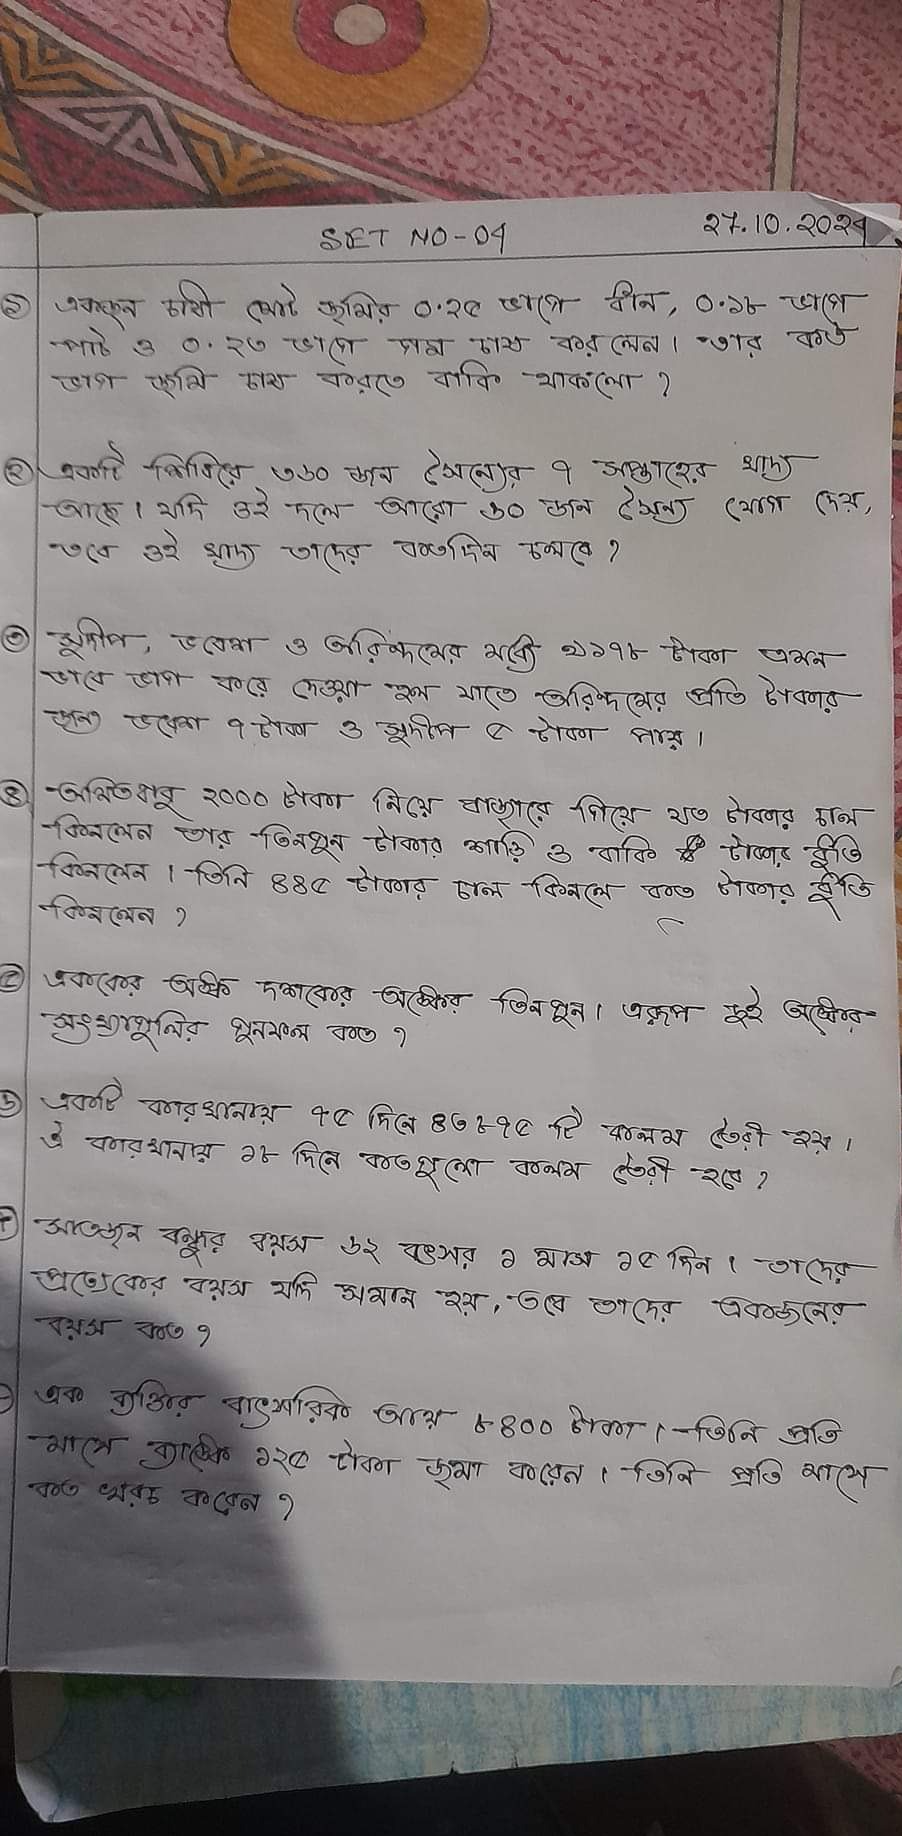 SET NO-04
27.10.2024
① একজন চাষী মোট জমির ০.২৫ ভাগে ধান, ০.১৮ ভাগে
পাট ও ০.২৩ ভাগে গম চাষ করলেন। তার কত
ভাগ জমি চাষ করতে বাকি থাকলো?
② একটি শিবিরে ৩৬০ জন সৈন্যের ৭ সপ্তাহের খাদ্য
আছে। যদি ওই দলে আরো ৬০ জন সৈন্য যোগ দেয়,
তবে ওই খাদ্য তাদের কতদিন চলবে?
③ সুদীপ, ভবেশ ও অরিন্দমের মধ্যে ১১৭৮ টাকা এমন
ভাবে ভাগ করে দেওয়া হল যাতে অরিন্দমের প্রতি টাকার
জন্য ভবেশ ৭ টাকা ও সুদীপ ৫ টাকা পায়।
④ অমিতবাবু ২০০০ টাকা নিয়ে বাজারে গিয়ে যত টাকার চাল
কিনলেন তার তিনগুন টাকার শাড়ি ও বাকি টাকার ধুতি
কিনলেন। তিনি ৪৪৫ টাকার চাল কিনলে কত টাকার ধুতি
কিনলেন?
⑤ এককের অঙ্ক দশকের অঙ্কের তিনগুন। এরূপ দুই অঙ্কের
সংখ্যাগুলির গুনফল কত?
⑥ একটি কারখানায় ৭৫ দিনে ৪৬৮৭৫ টি কলম তৈরী হয়।
ঐ কারখানায় ১৮ দিনে কতগুলো কলম তৈরী হবে?
সাতজন বন্ধুর বয়স ৬২ বৎসর ১ মাস ১৫ দিন। তাদের
প্রত্যেকের বয়স যদি সমান হয়, তবে তাদের একজনের
বয়স কত?
এক ব্যক্তির বাৎসরিক আয় ৮৪০০ টাকা। তিনি প্রতি
মাসে ব্যাঙ্কে ১২৫ টাকা জমা করেন। তিনি প্রতি মাসে
কত খরচ করেন?